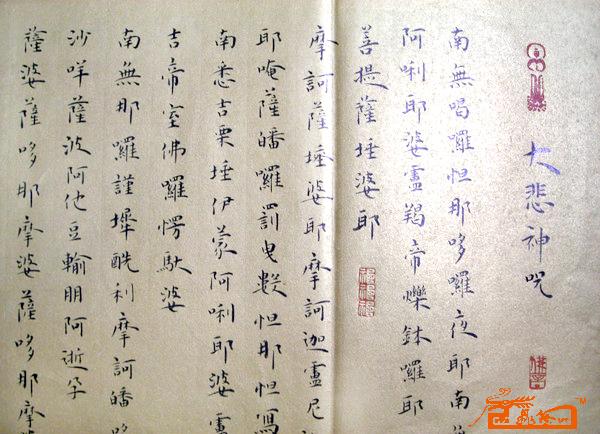 大悲神咒
南無喝囉怛那哆囉夜耶南無
阿唎耶婆盧羯帝爍鉢囉耶
菩提薩埵婆耶
摩訶薩埵婆耶摩訶迦盧尼
耶唵薩皤囉罰曳數怛那怛寫
南悉吉栗埵伊蒙阿唎耶婆盧
吉帝室佛羅愣馱婆
南無那囉謹墀醯利摩訶皤哆
沙咩薩波阿他豆輸朋阿逝孕
薩婆薩哆那摩婆薩哆那摩婆